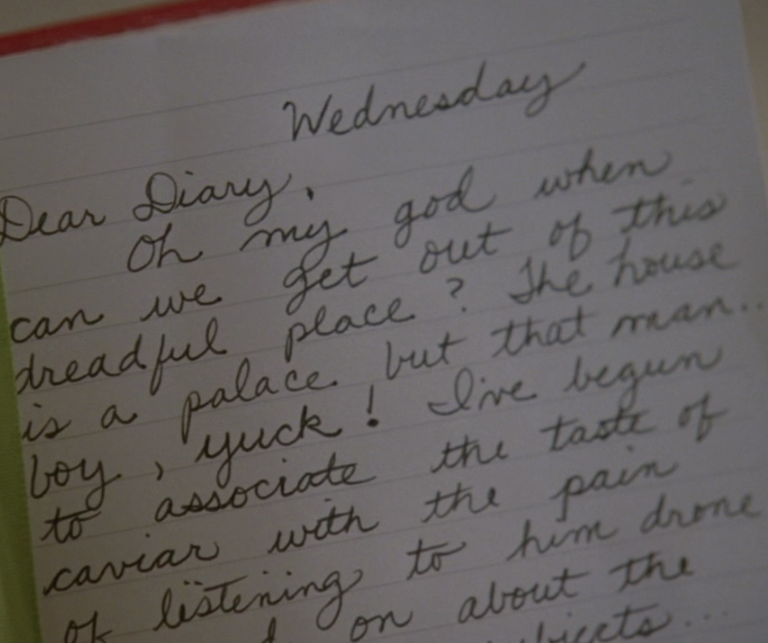 Wednesday
Dear Diary,
Oh my god when
can we get out of this
dreadful place? The house
is a palace but that man..
boy, yuck! I've begun
to associate the taste of
caviar with the pain
of listening to him drone
on about the